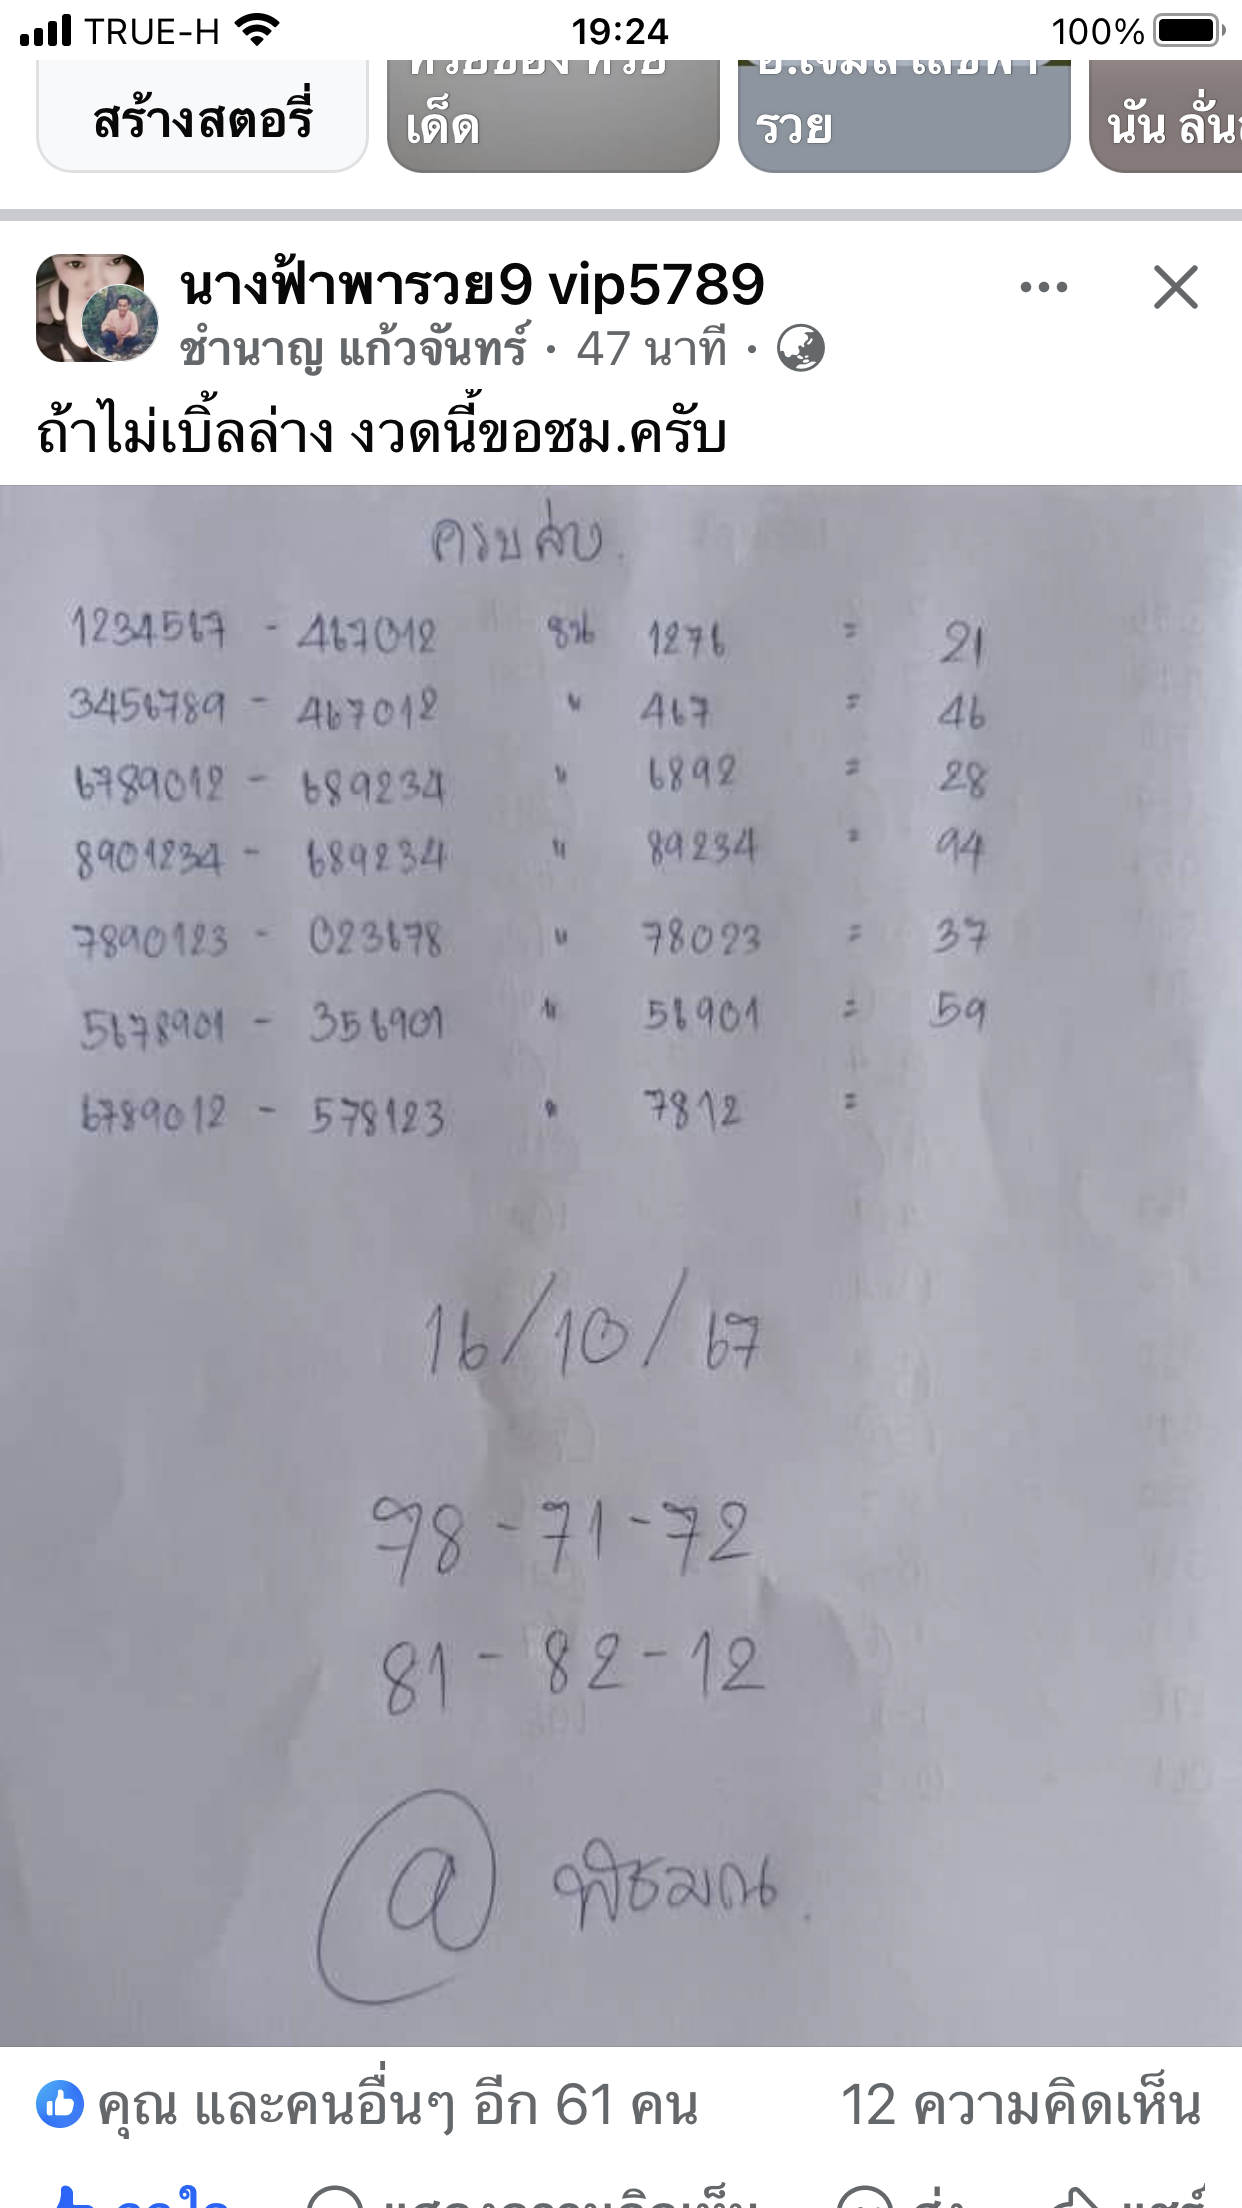 TRUE-H 19:24 100%
สร้างสตอรี่
เด็ด
รวย
นัน ลั่น
นางฟ้าพารวย9 vip5789
ชำนาญ แก้วจันทร์ · 47 นาที ·
ถ้าไม่เบิ้ลล่าง งวดนี้ขอชม.ครับ
ครบสูตร.
1234567 - 467012 ชน 1276 = 21
3456789 - 467012 " 467 = 46
6789012 - 689234 " 6892 = 28
8901234 - 689234 " 89234 = 94
7890123 - 023678 " 78023 = 37
5678901 - 356901 " 56901 = 59
6789012 - 578123 " 7812 =
16/10/67
78-71-72
81-82-12
@ พิชมณ.
คุณ และคนอื่นๆ อีก 61 คน 12 ความคิดเห็น